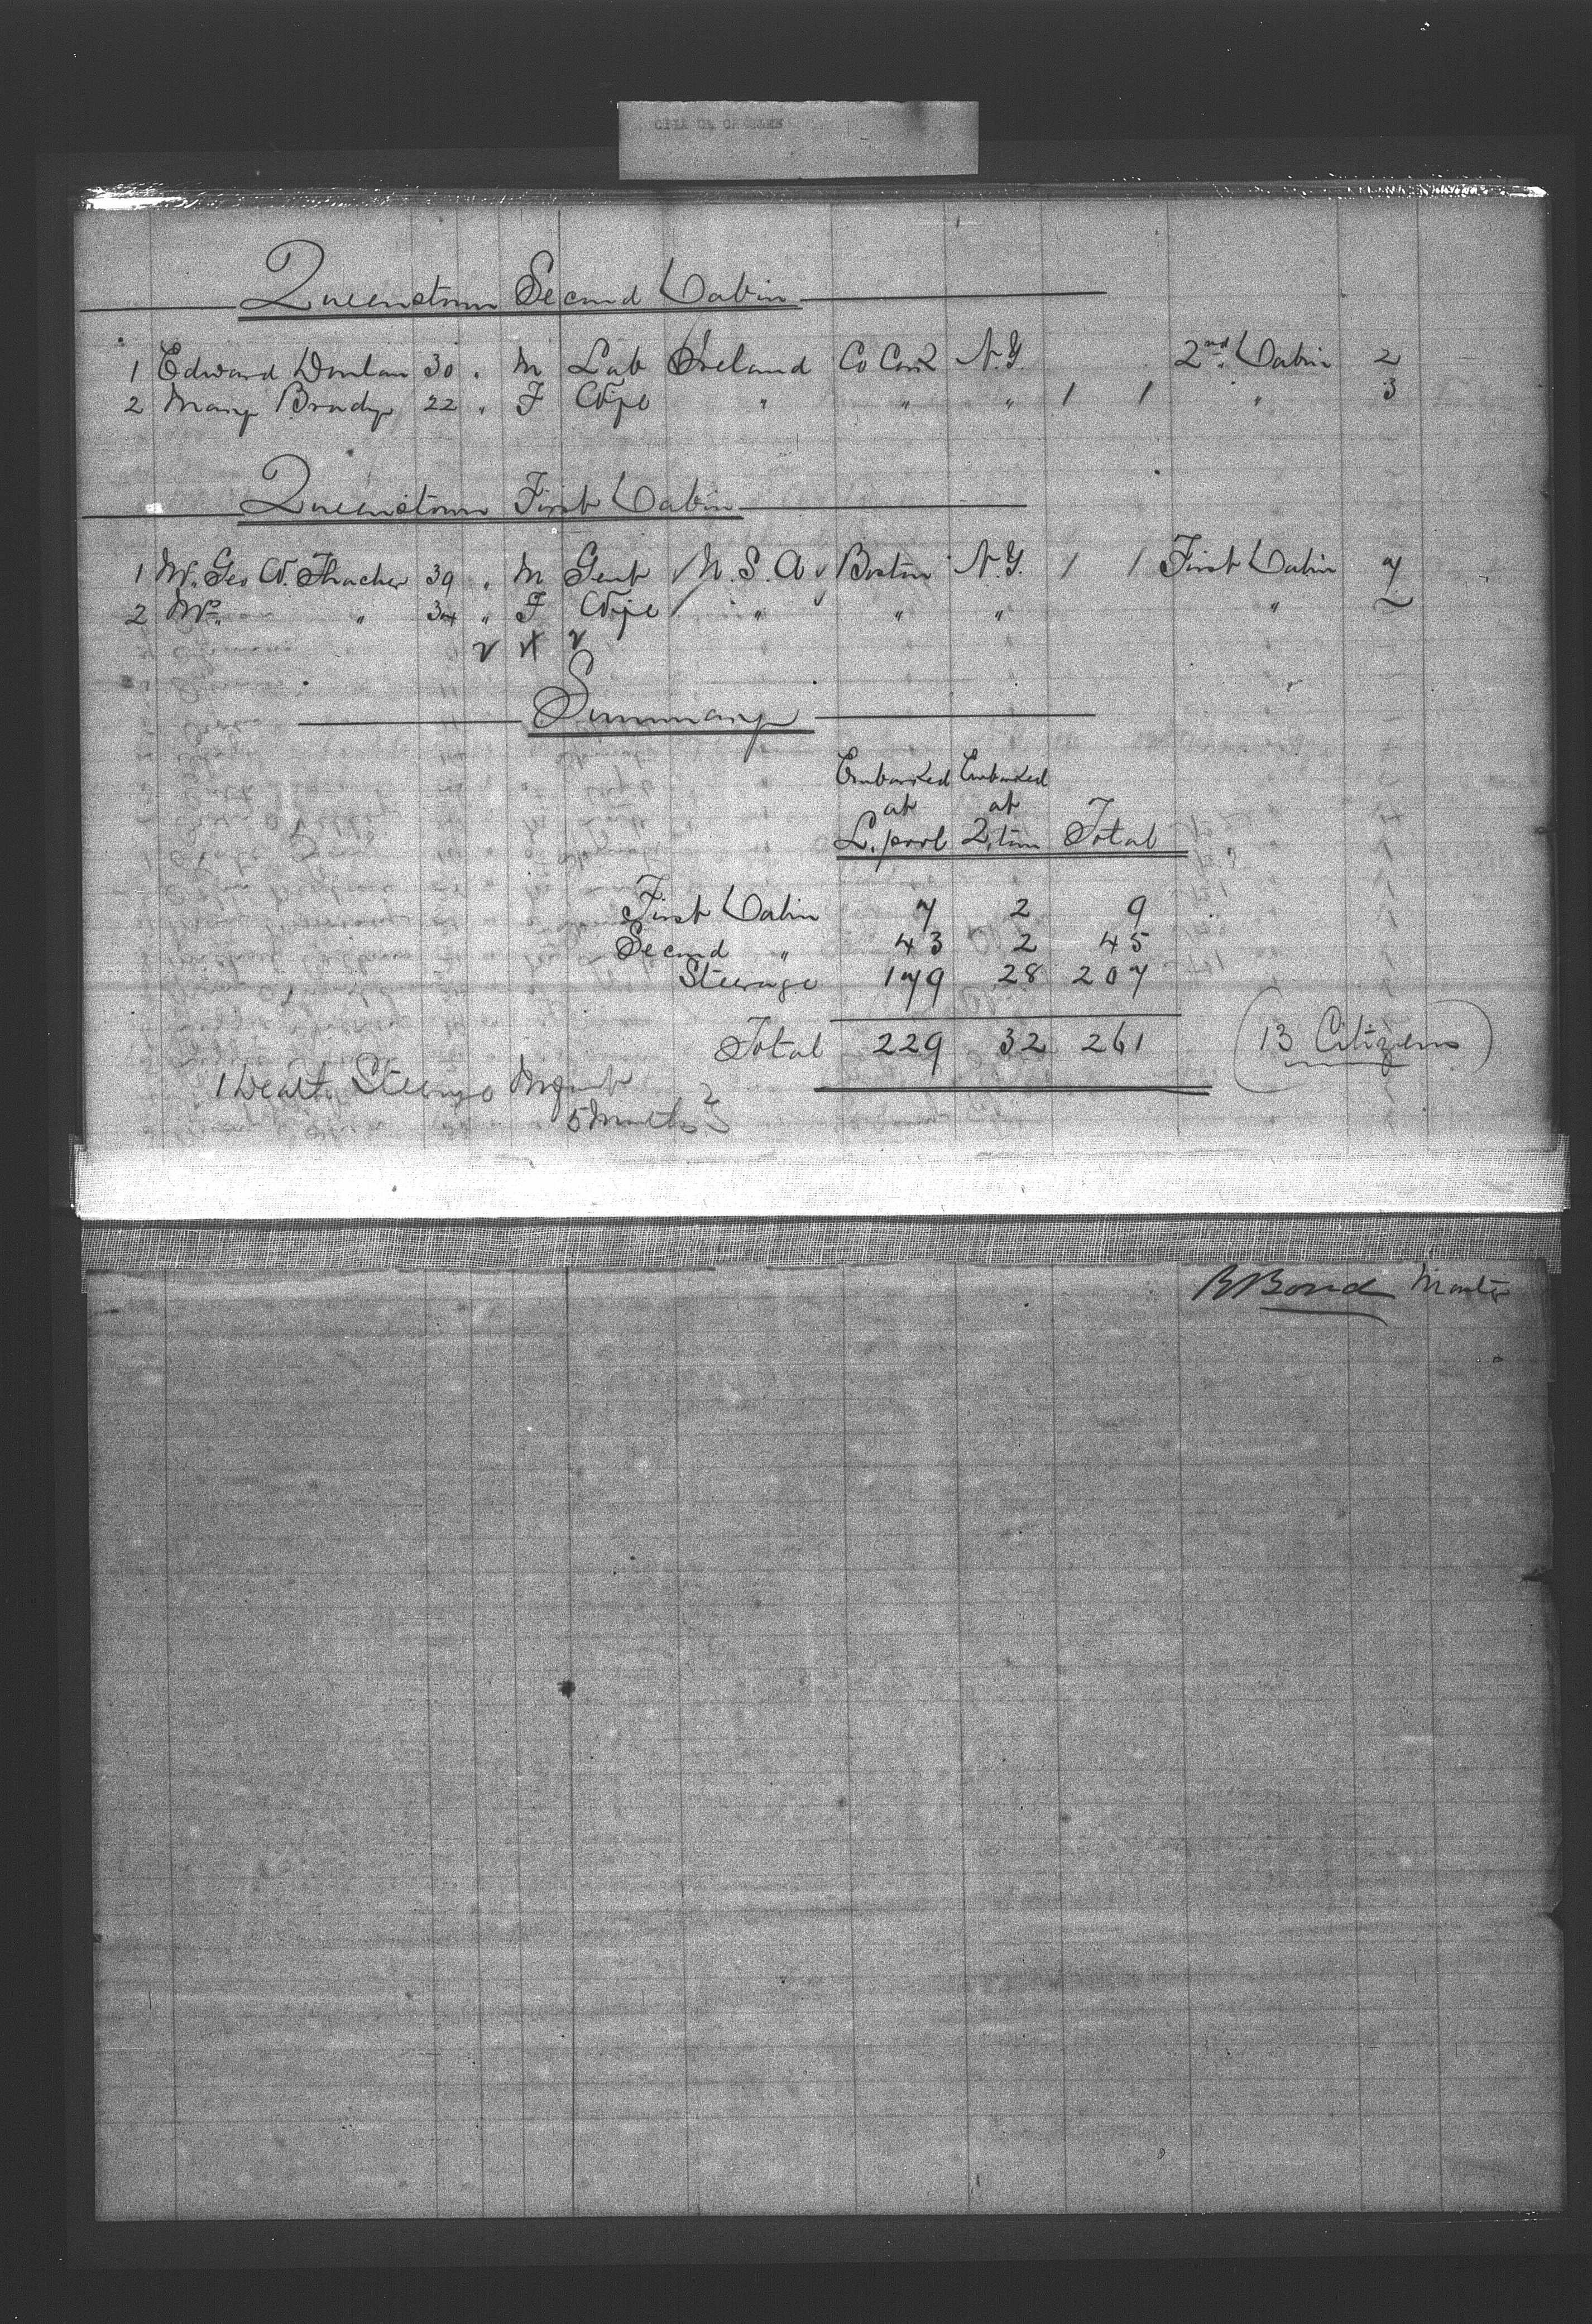 CITY OF CHESTER
Queenstown Second Cabin
1 Edward Donlan 30 " M Lab Ireland Co Cork N.Y. 2nd. Cabin 2
2 Mary Brady 22 " F Wife " " " 1 1 " 3
Queenstown First Cabin
1 Mr. Geo W. Thacher 39 " M Gent U.S.A Boston N.Y. 1 1 First Cabin 7
2 Mrs. " 34 " F Wife " " " "
Summary
Embarked Embarked
at at
L.pool Q.town Total
First Cabin 7 2 9
Second " 43 2 45
Steerage 179 28 207
Total 229 32 261 (13 Citizens)
1 Death Steerage
5 Months
Bond Master